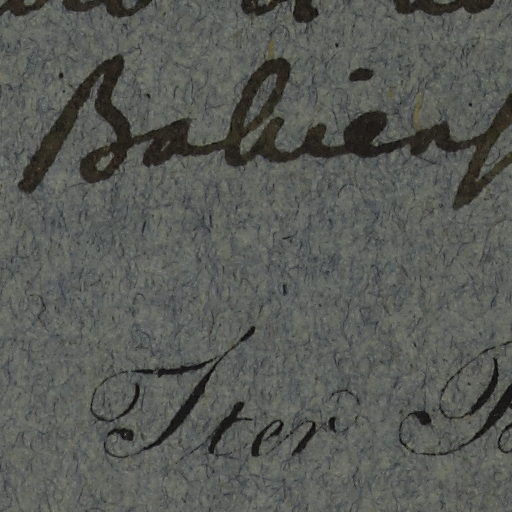 Bahiens
Iter B